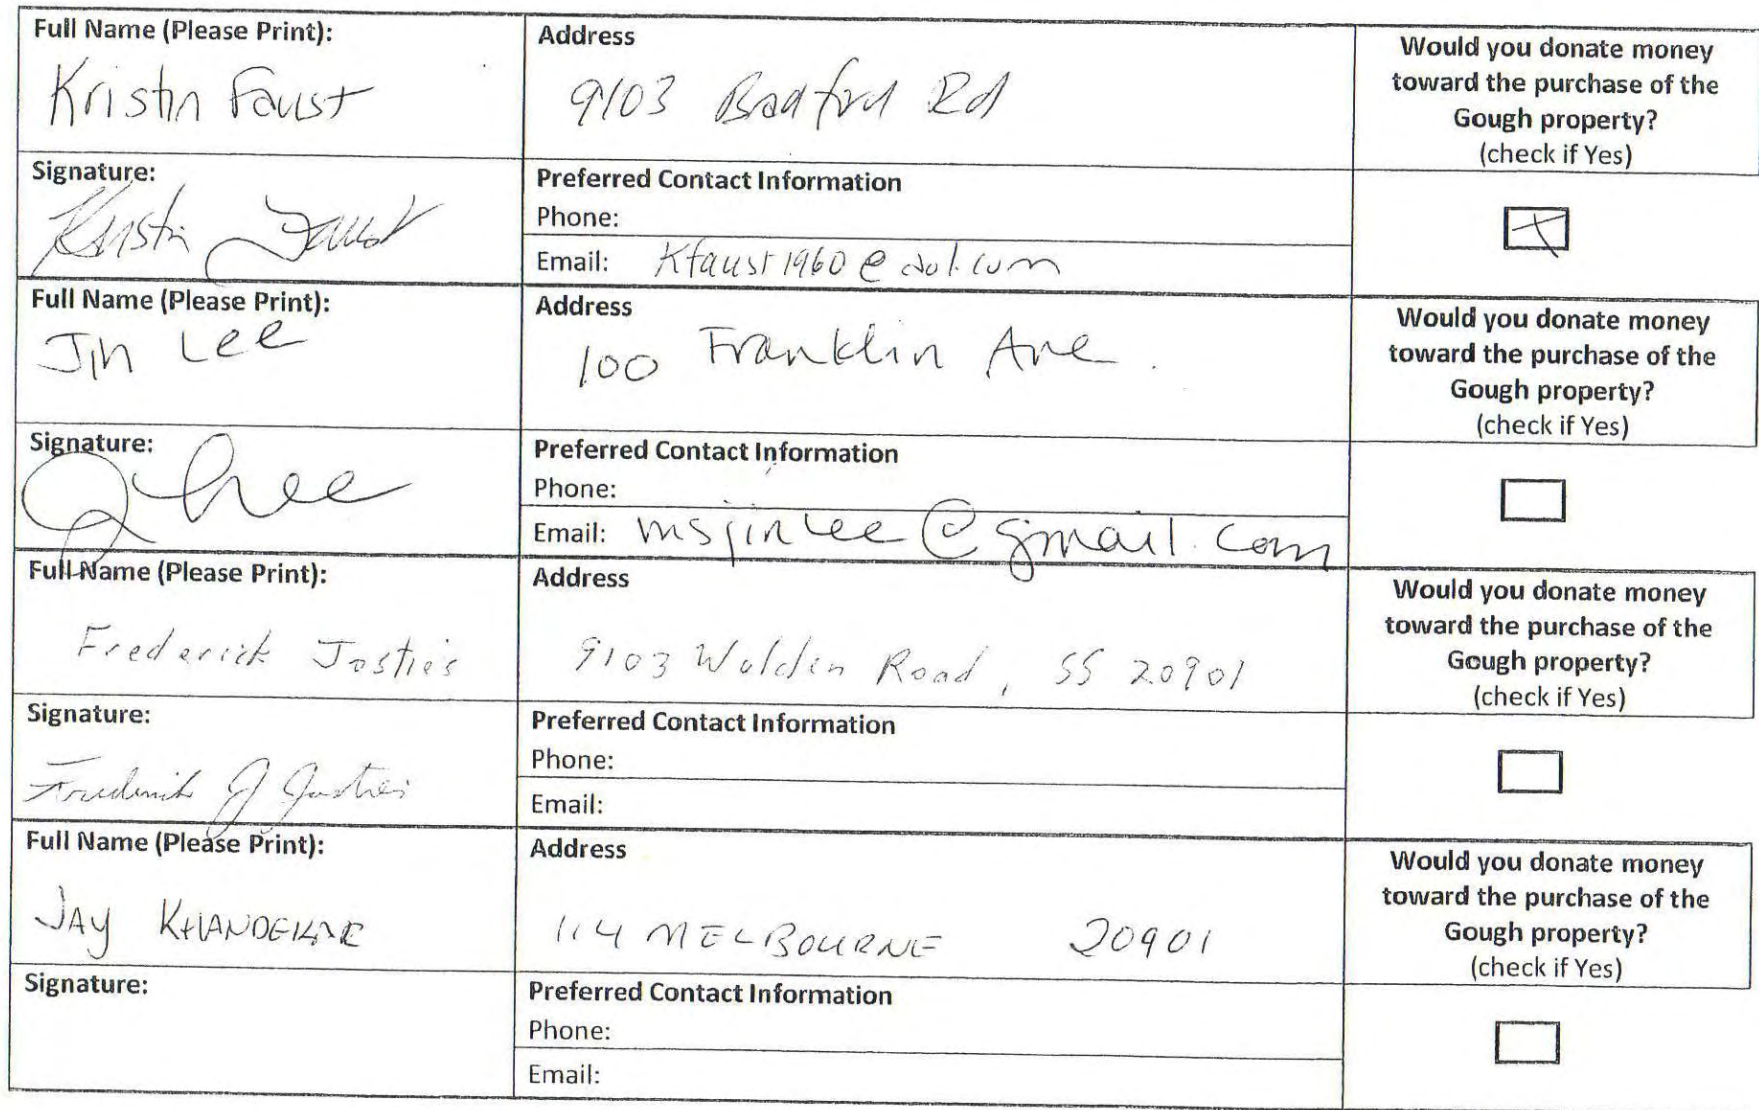 Full Name (Please Print):
Kristin Faust
Address
9103 Bradford Rd
Would you donate money
toward the purchase of the
Gough property?
(check if Yes)
Signature:
Kristin Faust
Preferred Contact Information
Phone:
Email: Kfaust1960@aol.com
Full Name (Please Print):
Jin Lee
Address
100 Franklin Ave.
Would you donate money
toward the purchase of the
Gough property?
(check if Yes)
Signature:
J Lee
Preferred Contact Information
Phone:
Email: msjinlee@gmail.com
Full Name (Please Print):
Frederick Josties
Address
9103 Walden Road, SS 20901
Would you donate money
toward the purchase of the
Gough property?
(check if Yes)
Signature:
Frederick J Josties
Preferred Contact Information
Phone:
Email:
Full Name (Please Print):
JAY KHANDEKAR
Address
114 MELBOURNE 20901
Would you donate money
toward the purchase of the
Gough property?
(check if Yes)
Signature:
Preferred Contact Information
Phone:
Email: